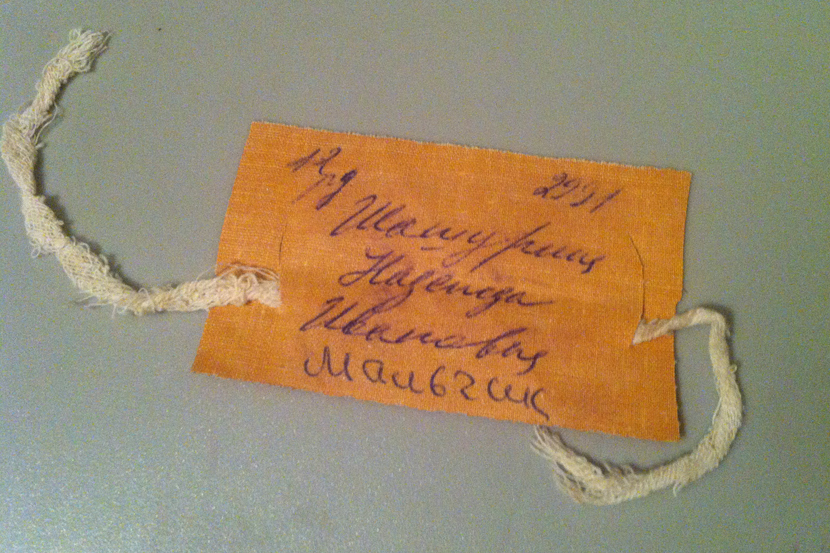 2991
Шашурина
Надежда
Ивановна
Мальчик